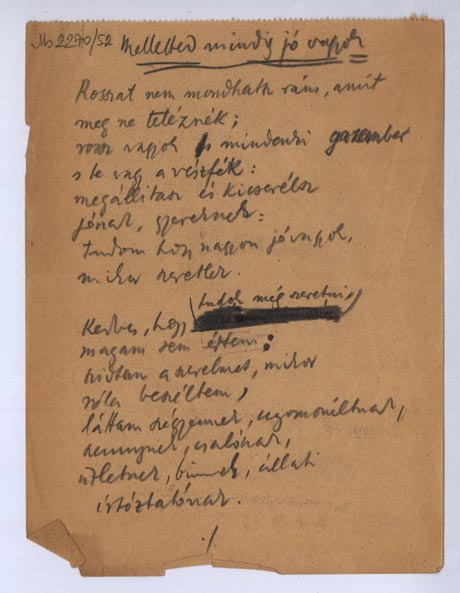 Ms 2270/52 Melletted mindig jó vagyok
Rosszat nem mondhatsz rám, amit
meg ne tetéznék;
rossz vagyok s mindenki gazember
s te vagy a vészfék:
megállítasz és kicserélsz
jónak, gyereknek:
tudom hogy nagyon jó vagyok,
mikor szeretlek.
Kedves, hogy tudok még szeretni,
magam sem értem:
szidtam a szerelmet, mikor
róla beszéltem,
láttam szégyennek,
szennynek, csalónak,
üzletnek, bűnnek, állati
irtóztatónak.
./.